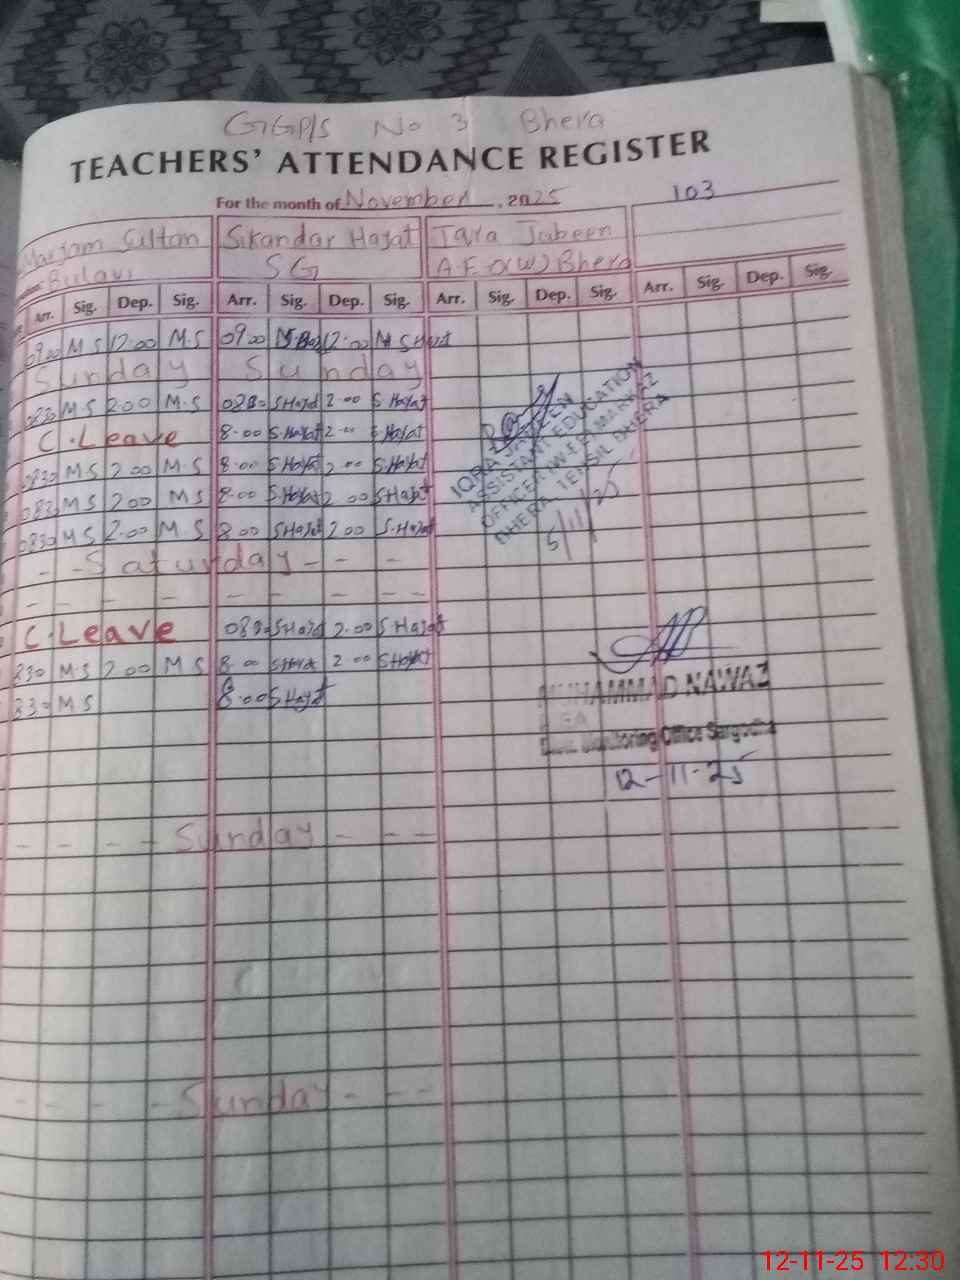 GGP/S No 3 Bhera
TEACHERS' ATTENDANCE REGISTER
For the month of November, 2025 103
Maryam Sultan Sikandar Hayat Iqra Jabeen
SG A.E.O(W) Bhera
Arr. Sig. Dep. Sig. Arr. Sig. Dep. Sig. Arr. Sig. Dep. Sig. Arr. Sig. Dep. Sig.
0900 M S 12.00 M.S 0900 12.00 M S Hayat
Sunday Sunday
0830 M.S 2.00 M.S 0830 S Hayat 2.00 S.Hayat
C.Leave 8.00 S.Hayat 2.00 S.Hayat
0830 M S 2.00 M.S 8.00 S.Hayat 2.00 S.Hayat
0830 M S 2.00 M S 8.00 S.Hayat 2.00 S Hayat
0830 M S 2.00 M.S 8.00 S Hayat 2.00 S.Hayat
- - Saturday - - -
- - - - - - - -
C.Leave 0830 S Hayat 2.00 S Hayat
830 M.S 2.00 M S 8.00 S Hayat 2.00 S Hayat
830 M S 8.00 S Hayat
IQRA JABEEN
ASSISTANT EDUCATION
OFFICER (W-EE) MARKAZ
BHERA TEHSIL BHERA
5/11/25
MUHAMMAD NAWAZ
MEA
Monitoring Office Sargodha
12-11-25
- - - - Sunday - - -
- - - - Sunday - - -
12-11-25 12:30